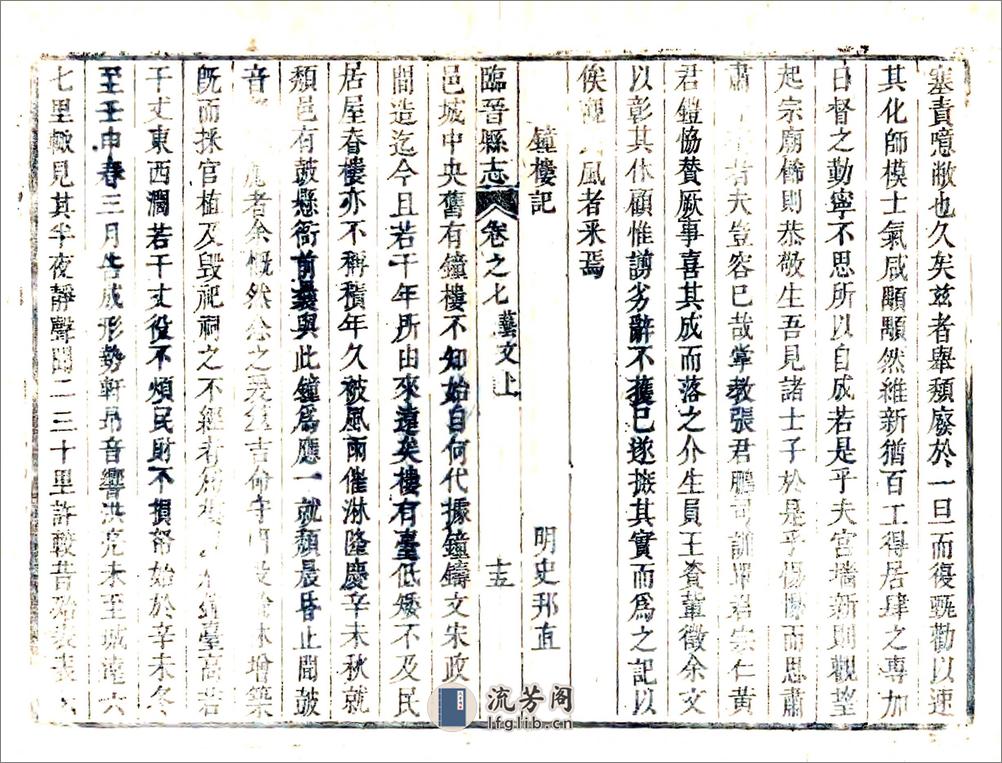 塞責噫敝也久矣兹者舉頽廢於一旦而復甄勸以速
其化師模士氣咸顒顒然維新猶百工得居肆之專加
日督之勤寧不思所以自成若是乎夫宮墻新則觀望
起宗廟僃則恭敬生吾見諸士子於是乎惕而思肅
肅者夫豈容已哉掌教張君鵬司訓君宗仁黄
君鎧協賛厥事喜其成而落之介生員王賚軰徵余文
以彰其休顧惟謭劣辭不獲已遂摭其實而爲之記以
俟觀風者釆焉
鐘樓記
明史邦直
臨晉縣志
卷之七
藝文上
十五
邑城中央舊有鐘樓不知始自何代據鐘鑄文宋政
間造迄今且若干年所由來遠矣樓有臺低矮不及民
居屋春樓亦不稱積年久被風雨催淋隆慶辛未秋就
頽邑有鼓懸衙前與此鐘爲應一就頽晨昏止聞鼓
音者余慨然念之爰吉命增築
旣而採官植及毀祀祠之不經者臺高若
干丈東西濶若干丈役不煩民財不損帑始於辛未冬
至壬申春三月告成形勢軒昂音響洪亮未至城淹六
七里輙見其半夜靜聲聞二三十里許較昔
流芳阁
lfglib.cn